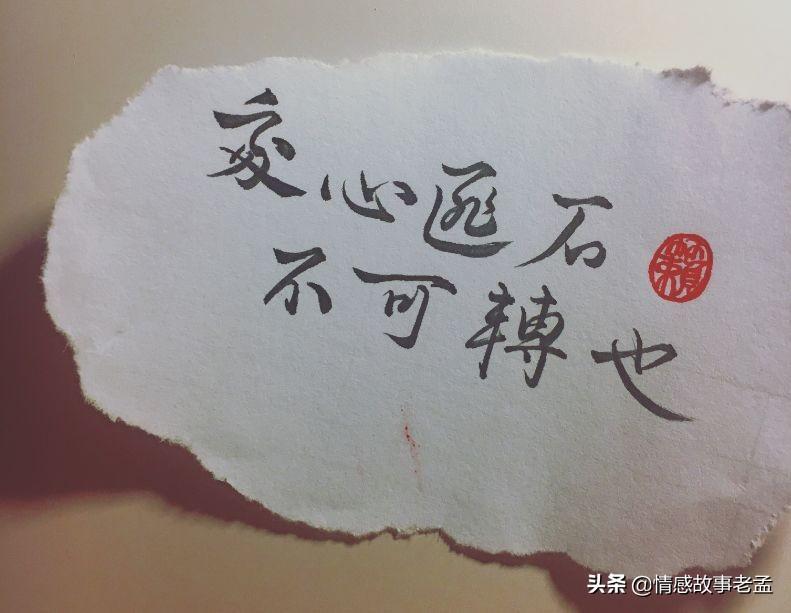 心匪石
不可轉也
賴
头条 @情感故事老孟